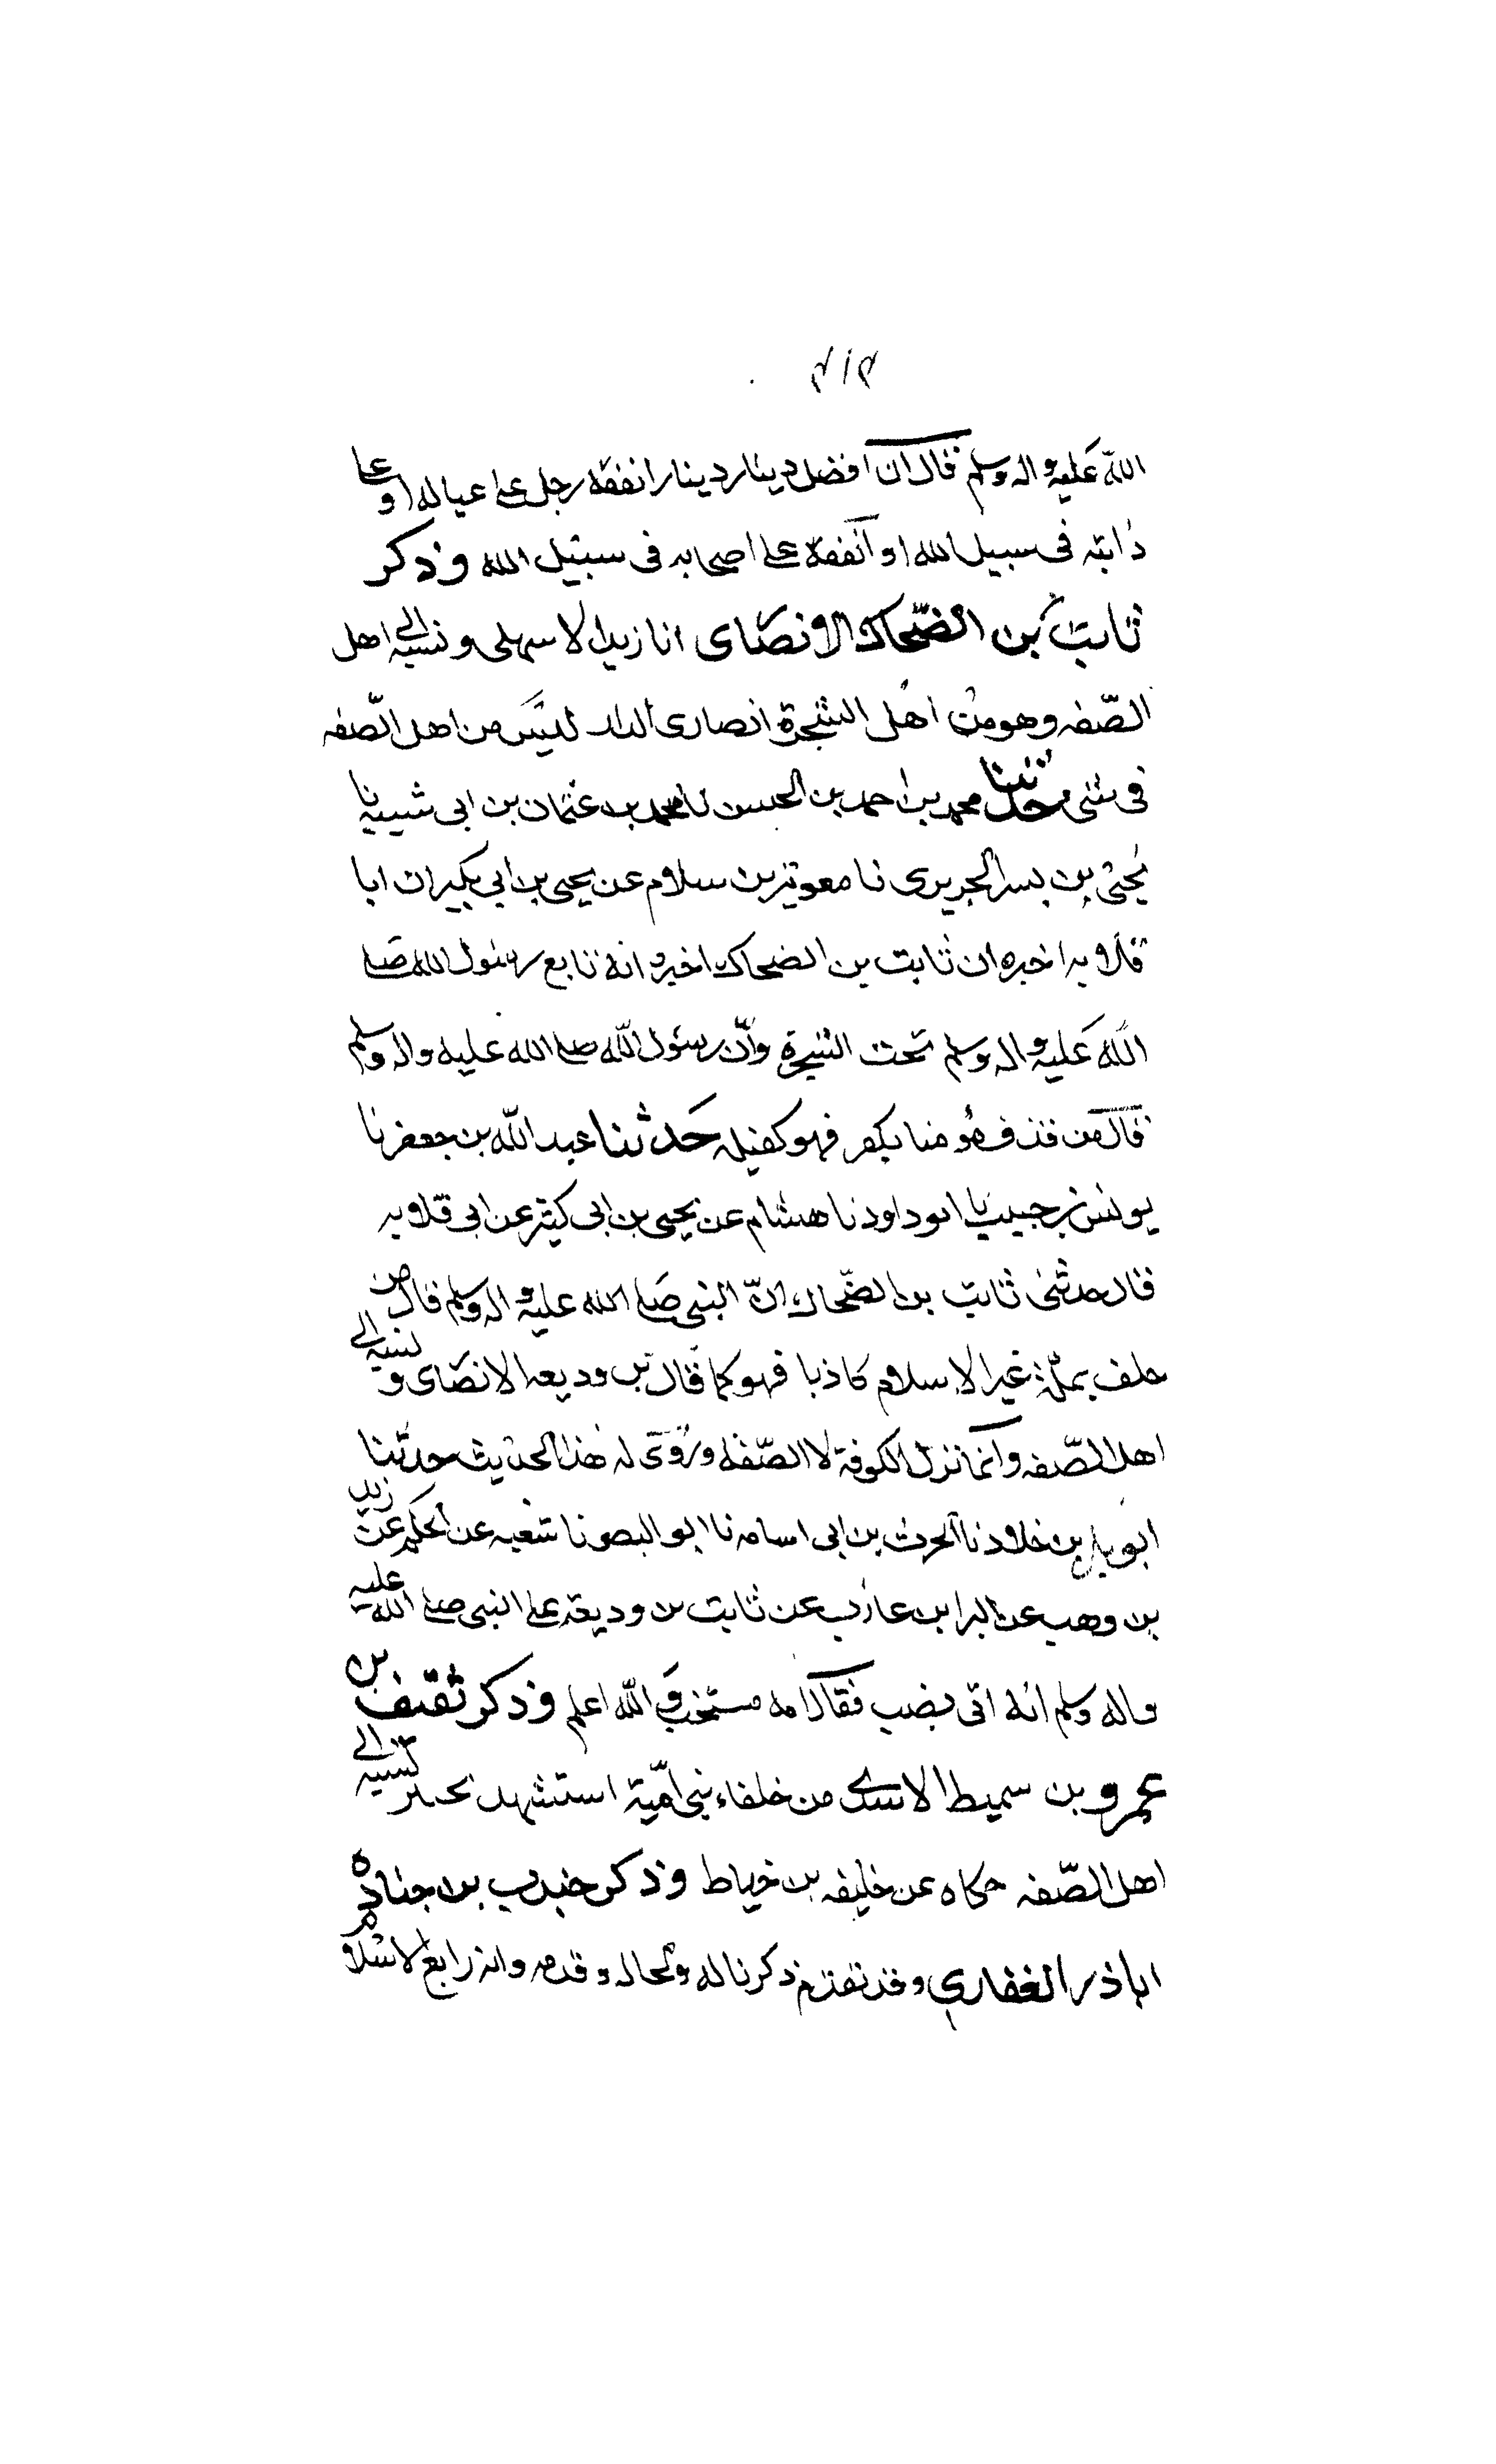 ٤١٤
الله عليه واله وسلم قال ان افضل دينار دينار انفقه رجل على عياله او على
دابته فى سبيل الله او انفقه على اصحابه فى سبيل الله وذكر
ثابت بن الضحاك الانصارى انا زيد الاسهلى ونسبه الى اهل
الصفه وهو من اهل الشجرة انصارى الدار ليس من اهل الصفه
فى شئ حدثنا محمد بن احمد بن الحسن نا محمد بن عثمان بن ابى شيبه نا
يحيى بن بسر الجريرى نا معوية بن سلام عن يحيى بن ابى بكير ان ابا
قلابه اخبره ان ثابت بن الضحاك اخبره انه تابع رسول الله صلى
الله عليه واله وسلم تحت الشجرة وان رسول الله صلى الله عليه واله وسلم
قال من قذف مومنا بكفر فهو كفيله حدثنا عبد الله بن جعفر نا
يونس بن حبيب نا ابو داود نا هشام عن يحيى بن ابى كثير عن ابى قلابه
قال حدثنى ثابت بن الضحاك ان النبى صلى الله عليه واله وسلم قال من
حلف بملة غير الاسلام كاذبا فهو كما قال بن وديعه الانصارى ونسبه الى
اهل الصفه وانما نزل الكوفة لا الصفه وروى له هذا الحديث حدثنا
ابو بن خلاد نا الحرث بن ابى اسامه نا ابو النصر نا شعبه عن الحكم عن زيد
بن وهب عن البرا بن عازب عن ثابت بن وديعة على النبى صلى الله عليه
واله وسلم انه اتى بضب فقال امه مسخت والله اعلم وذكر ثقيف بن
عمرو بن سميط الاسدى من خلفاء بنى امية استشهد بخيبر نسبه الى
اهل الصفه حكاه عن خليفه بن خياط وذكر جندب بن جناده
اباذر الغفارى وقد تقدم ذكرنا له ولحاله وقدمه وانه رابع الاسلام